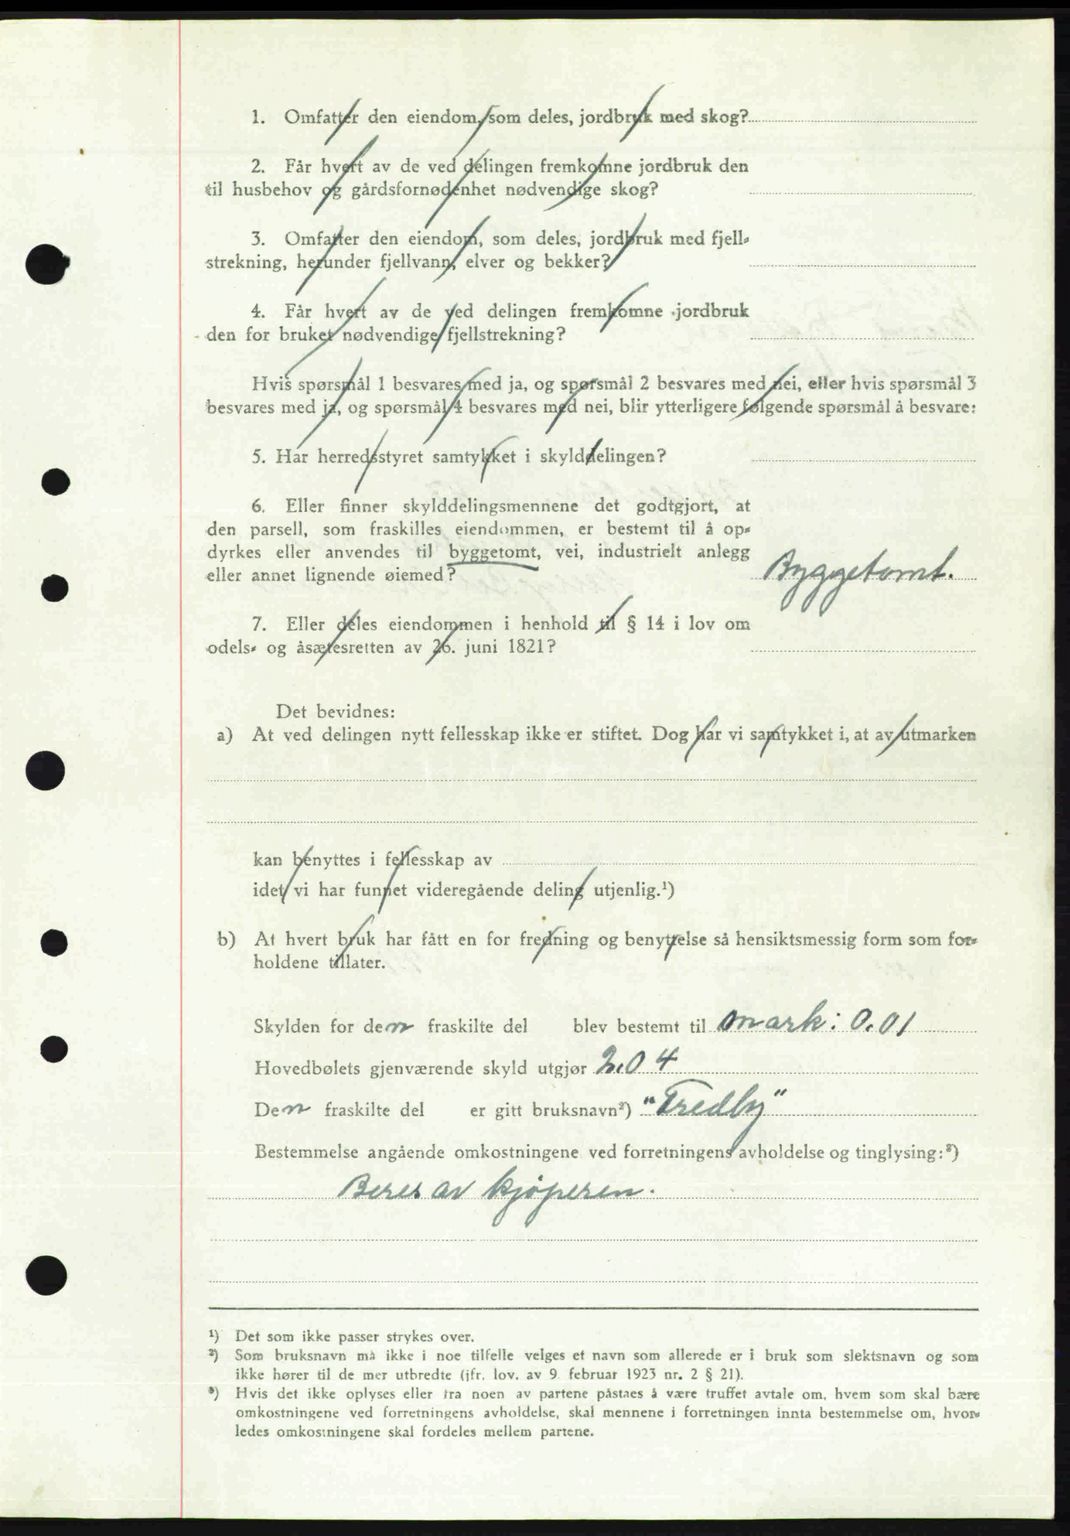 1. Omfatter den eiendom, som deles, jordbruk med skog?
2. Får hvert av de ved delingen fremkomne jordbruk den
til husbehov og gårdsfornødenhet nødvendige skog?
3. Omfatter den eiendom, som deles, jordbruk med fjell-
strekning, herunder fjellvann, elver og bekker?
4. Får hvert av de ved delingen fremkomne jordbruk
den for bruket nødvendige fjellstrekning?
Hvis spørsmål 1 besvares med ja, og spørsmål 2 besvares med nei, eller hvis spørsmål 3
besvares med ja, og spørsmål 4 besvares med nei, blir ytterligere følgende spørsmål å besvare:
5. Har herredsstyret samtykket i skylddelingen?
6. Eller finner skylddelingsmennene det godtgjort, at
den parsell, som fraskilles eiendommen, er bestemt til å op-
dyrkes eller anvendes til byggetomt, vei, industrielt anlegg
eller annet lignende øiemed? Byggetomt.
7. Eller deles eiendommen i henhold til § 14 i lov om
odels- og åsætesretten av 26. juni 1821?
Det bevidnes:
a) At ved delingen nytt fellesskap ikke er stiftet. Dog har vi samtykket i, at av utmarken
kan benyttes i fellesskap av
idet vi har funnet videregående deling utjenlig.¹)
b) At hvert bruk har fått en for fredning og benyttelse så hensiktsmessig form som for-
holdene tillater.
Skylden for den fraskilte del blev bestemt til mark: 0.01
Hovedbølets gjenværende skyld utgjør 2.04
Den fraskilte del er gitt bruksnavn²) "Fredly"
Bestemmelse angående omkostningene ved forretningens avholdelse og tinglysing:³)
Beres av kjøperen.
¹) Det som ikke passer strykes over.
²) Som bruksnavn må ikke i noe tilfelle velges et navn som allerede er i bruk som slektsnavn og som
ikke hører til de mer utbredte (jfr. lov. av 9. februar 1923 nr. 2 § 21).
³) Hvis det ikke oplyses eller fra noen av partene påstaes å være truffet avtale om, hvem som skal bære
omkostningene ved forretningens avholdelse, skal mennene i forretningen innta bestemmelse om, hvor-
ledes omkostningene skal fordeles mellem partene.